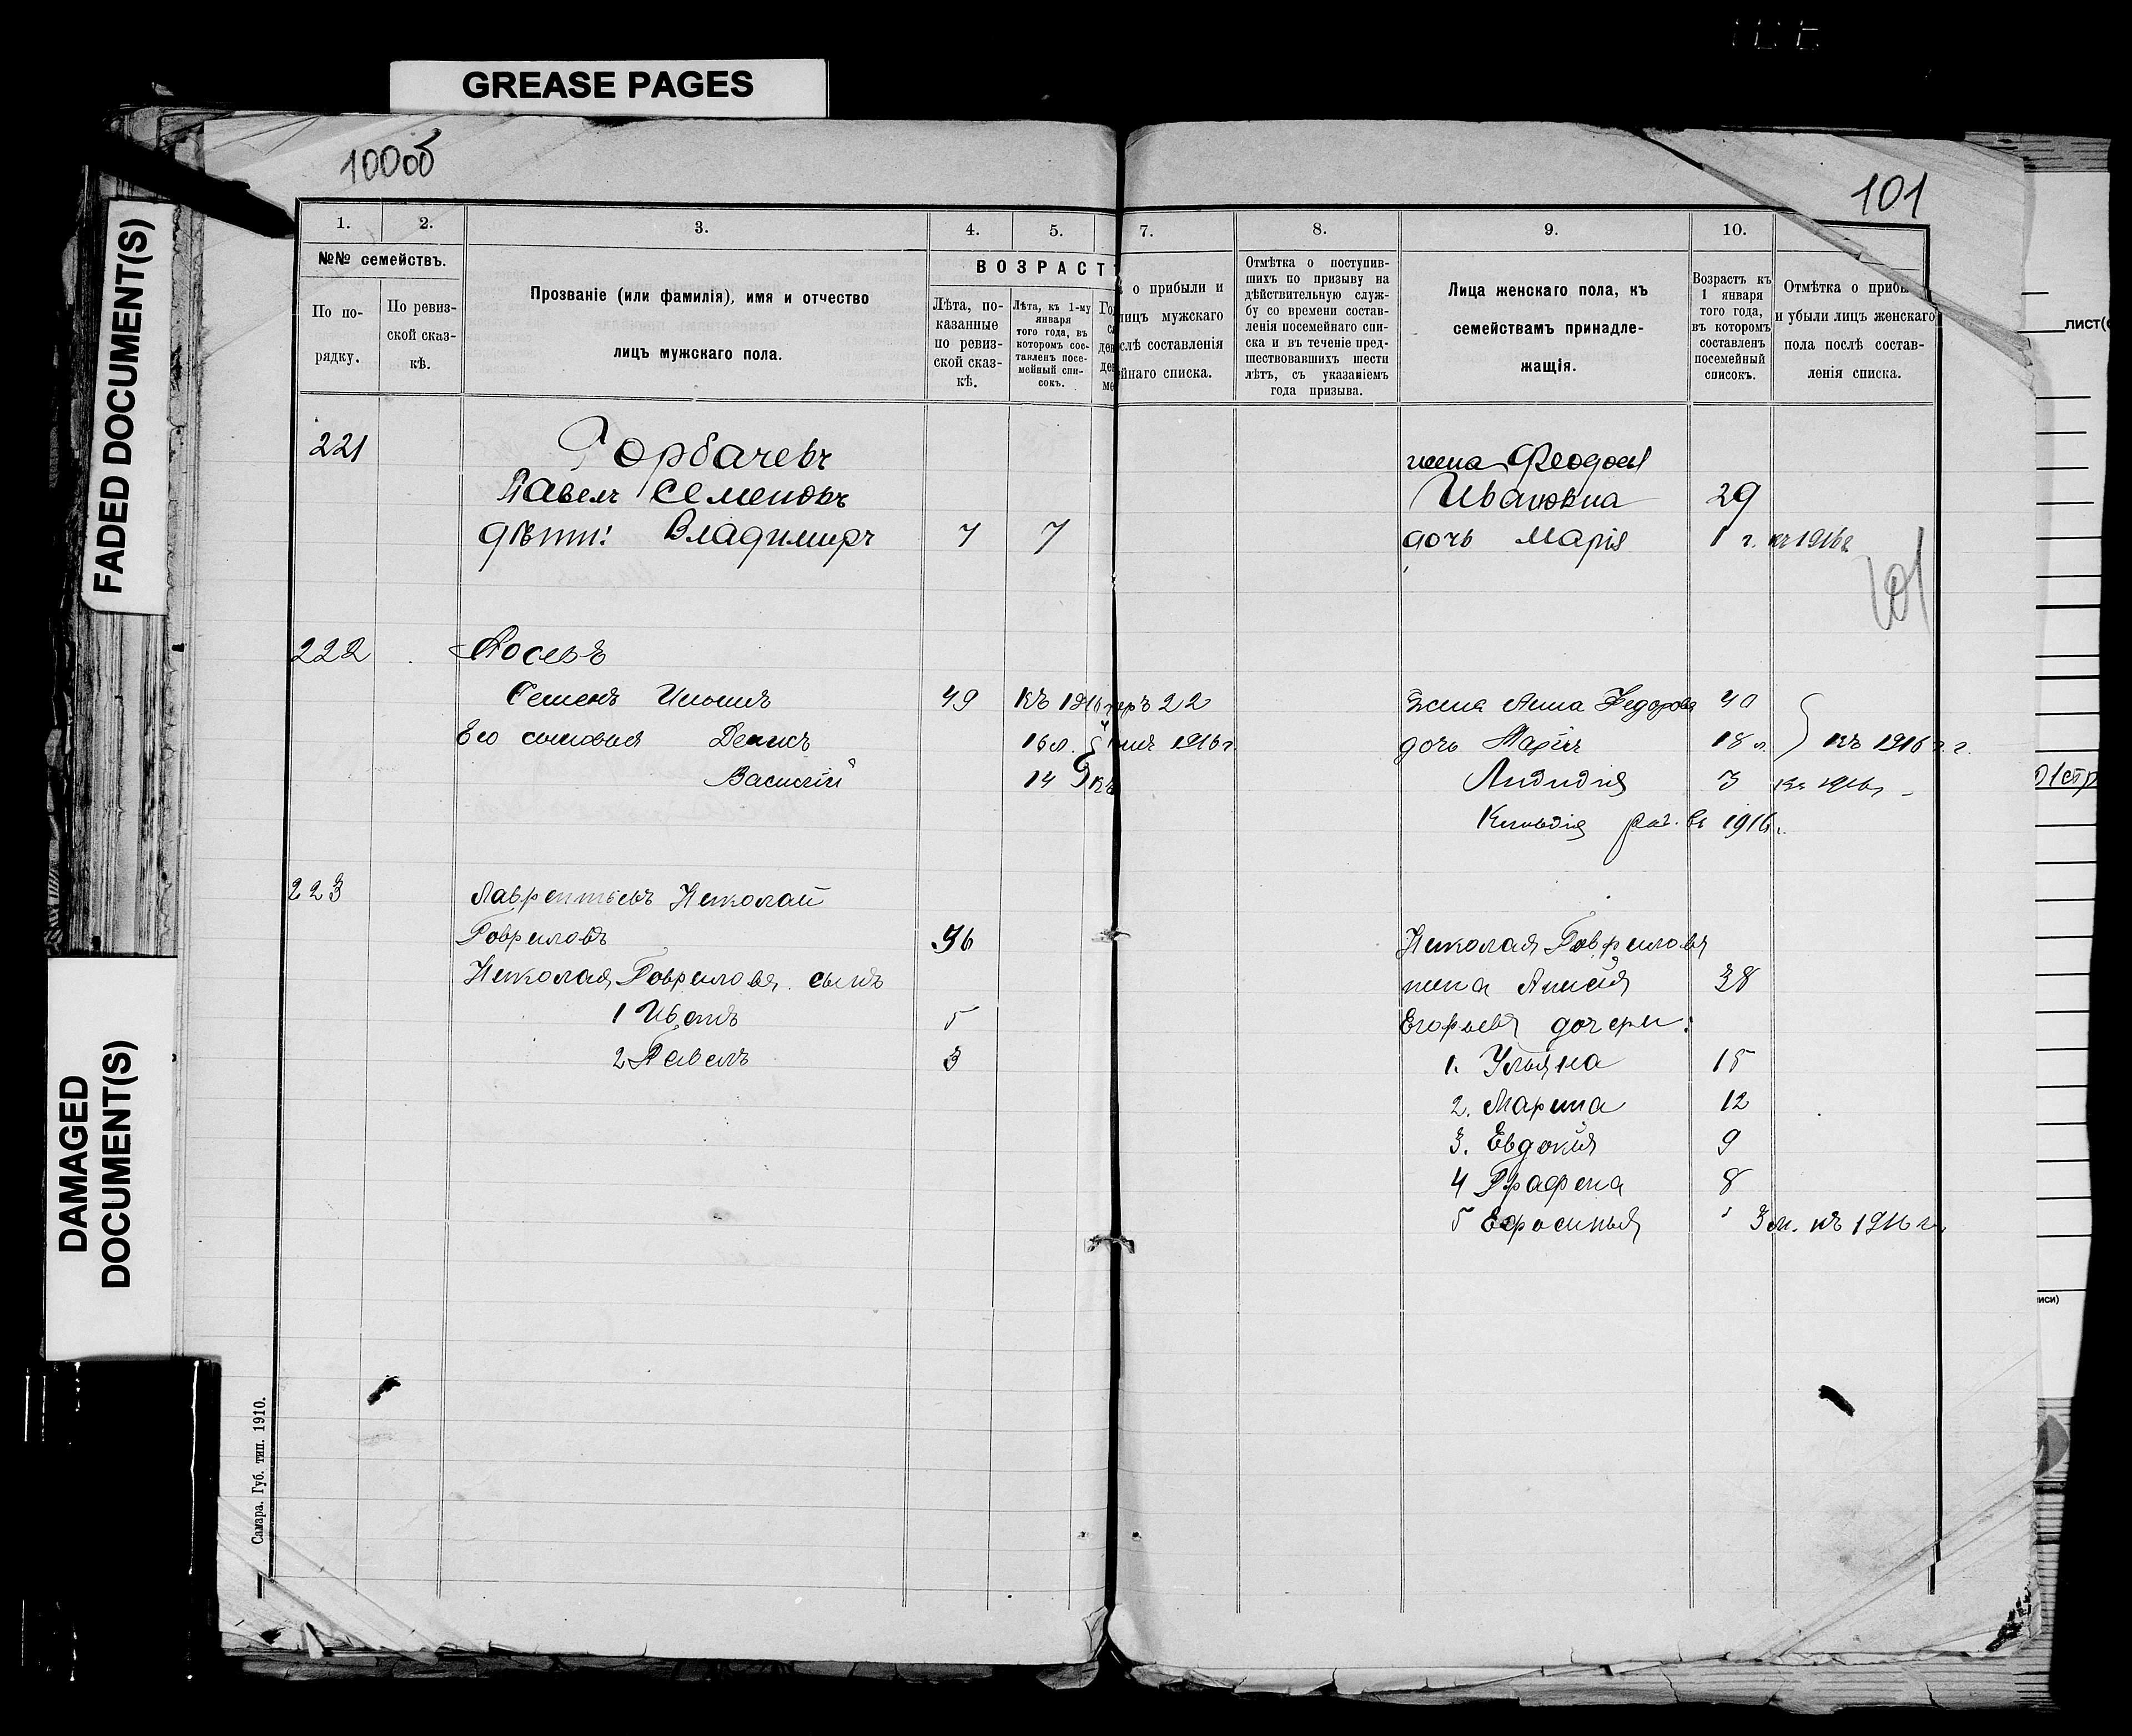 GREASE PAGES
FADED DOCUMENT(S)
DAMAGED
DOCUMENT(S)
100об
101
1.
2.
3.
4.
5.
№№ семействъ.
По по-
рядку.
По ревиз-
ской сказ-
кѣ.
Прозваніе (или фамилія), имя и отчество
лицъ мужскаго пола.
ВОЗРАСТ
Лѣта, по-
казанные
по ревиз-
ской сказ-
кѣ.
Лѣта, къ 1-му
января
того года, въ
которомъ сос-
тавленъ посе-
мейный спи-
сокъ.
7.
8.
9.
10.
о прибыли и
лицъ мужскаго
слѣ составленія
йнаго списка.
Отмѣтка о поступив-
шихъ по призыву на
дѣйствительную служ-
бу со времени состав-
ленія посемейнаго спи-
ска и въ теченіе пред-
шествовавшихъ шести
лѣтъ, съ указаніемъ
года призыва.
Лица женскаго пола, къ
семействамъ принадле-
жащія.
Возрастъ къ
1 января
того года,
въ которомъ
составленъ
посемейный
списокъ.
Отмѣтка о приб
и убыли лицъ женскаго
пола послѣ состав-
ленія списка.
221 Горбачевъ
Павелъ Семеновъ
дѣти: Владимиръ 7 7
жена Феодос
Ивановна 29
дочь Марія 1 г. къ 1916г
101
222
Семенъ Ильинъ 49 къ 1916
Его сыновья Денисъ 16л. 1916г.
Василій 14 къ
жена Анна Федорова 40
дочь Марія 18 л. къ 1916 г.
Лидидія 3 къ 1916г
Клавдія в 1916г.
223 Лаврентьевъ Николай
Гавриловъ 36
Николая Гаврилова сынъ
1 Иванъ 5
2 Павелъ 3
Николая Гаврилова
жена Анисія 38
Егорьева дочери:
1. Ульяна 15
2. Марина 12
3. Евдокія 9
4 Графена 8
5 Ефросинья 3 м. къ 1916 г.
Самара. Губ. тип. 1910.
ЛИСТ(